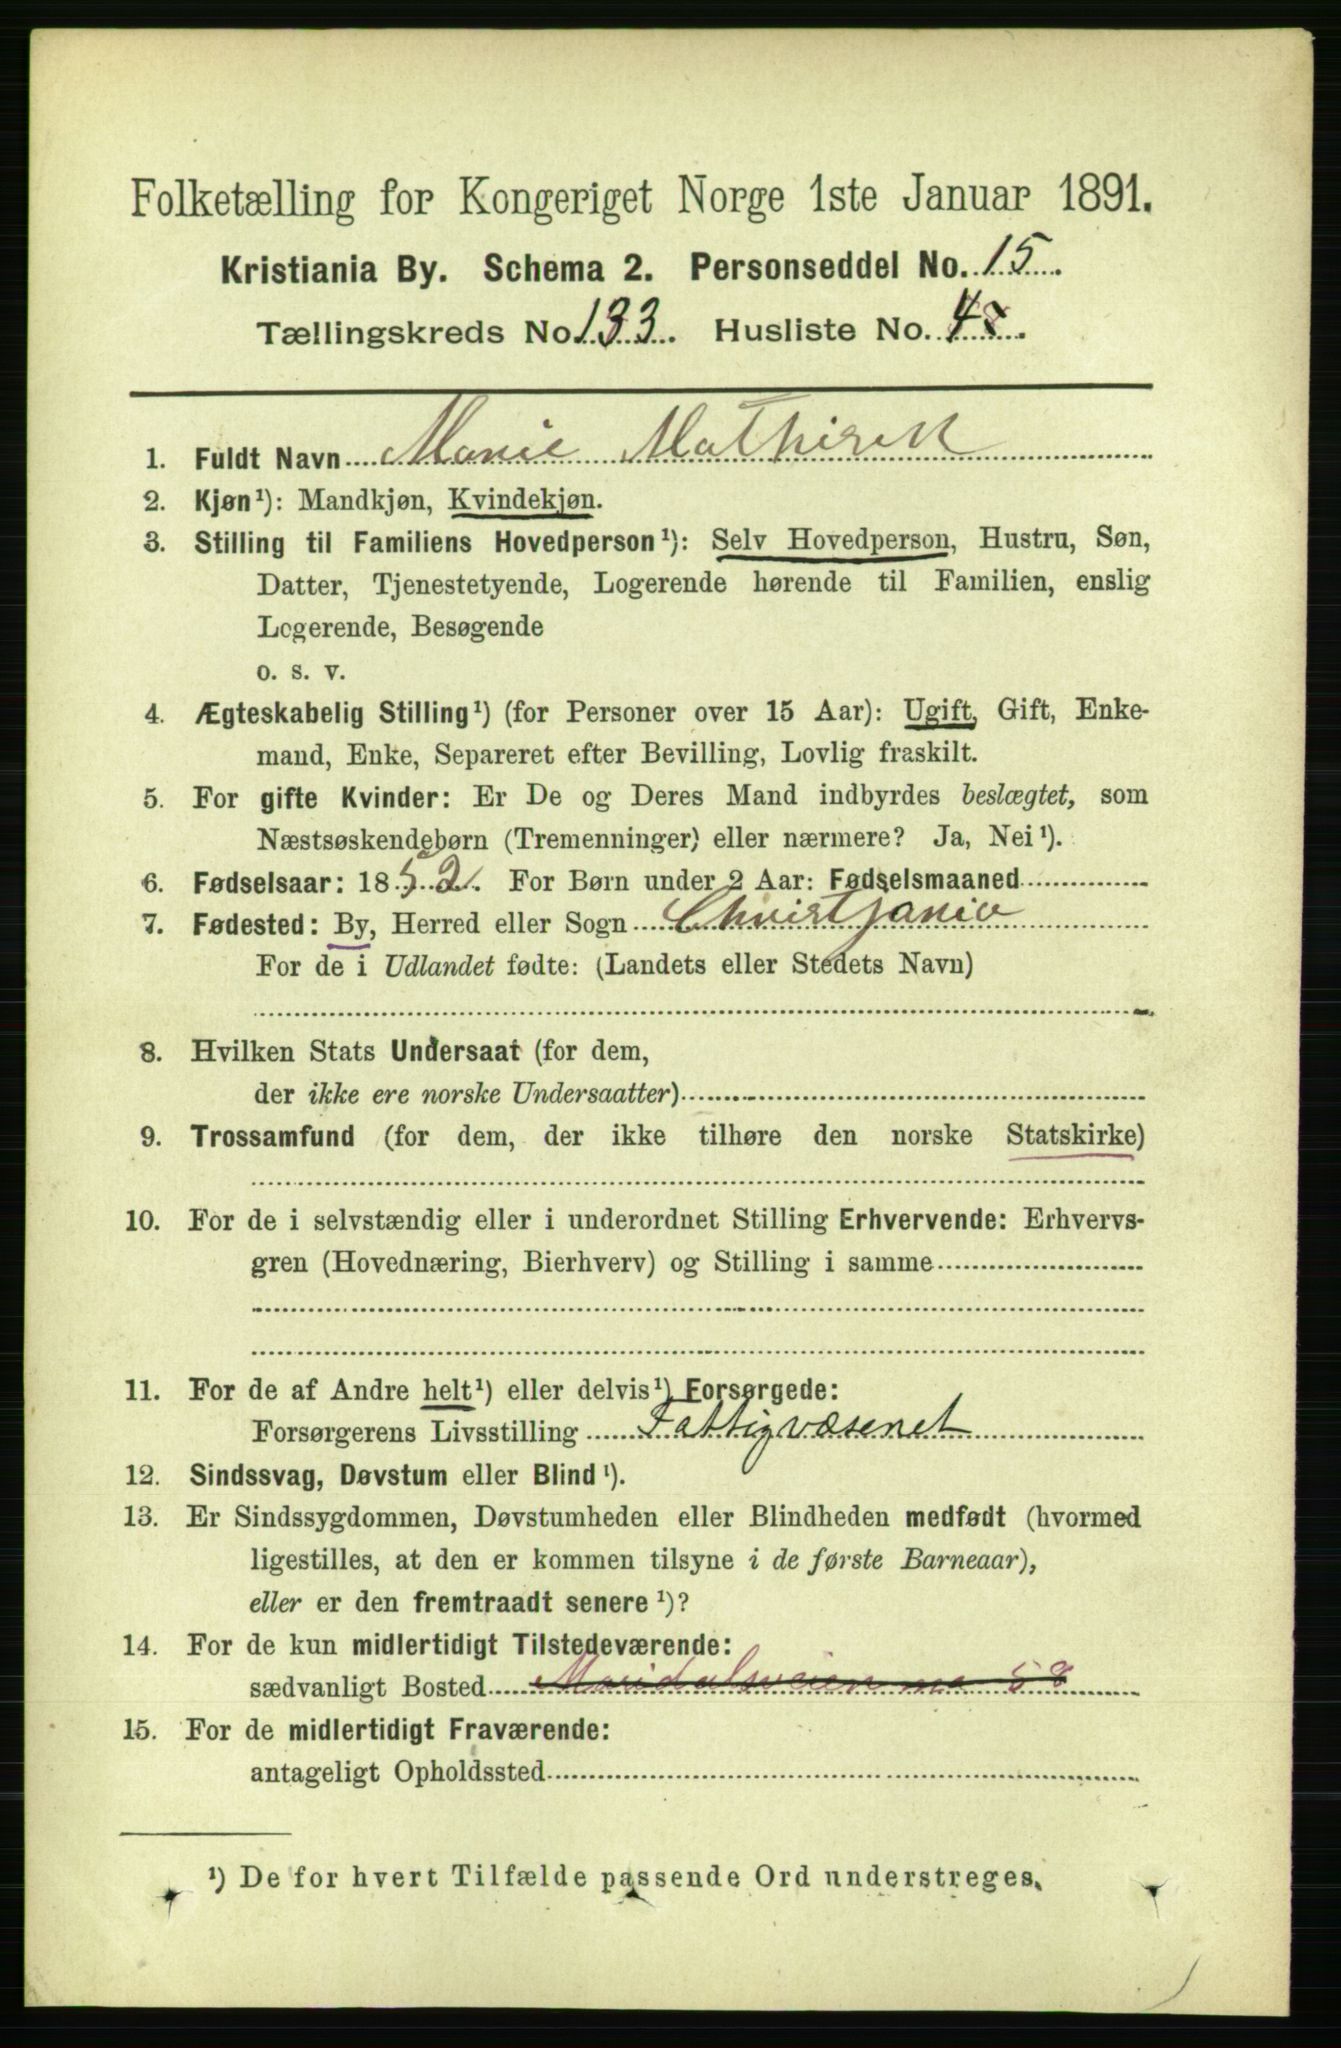 Folketælling for Kongeriget Norge 1ste Januar 1891.
Kristiania By. Schema 2. Personseddel No. 15.
Tællingskreds No. 133. Husliste No. 4.
1. Fuldt Navn Marie Mathisen
2. Kjøn¹): Mandkjøn, Kvindekjøn.
3. Stilling til Familiens Hovedperson¹): Selv Hovedperson, Hustru, Søn,
Datter, Tjenestetyende, Logerende hørende til Familien, enslig
Logerende, Besøgende
o. s. v.
4. Ægteskabelig Stilling¹) (for Personer over 15 Aar): Ugift, Gift, Enke-
mand, Enke, Separeret efter Bevilling, Lovlig fraskilt.
5. For gifte Kvinder: Er De og Deres Mand indbyrdes beslægtet, som
Næstsøskendebørn (Tremenninger) eller nærmere? Ja, Nei¹).
6. Fødselsaar: 1852. For Børn under 2 Aar: Fødselsmaaned
7. Fødested: By, Herred eller Sogn Christjania
For de i Udlandet fødte: (Landets eller Stedets Navn)
8. Hvilken Stats Undersaat (for dem,
der ikke ere norske Undersaatter)
9. Trossamfund (for dem, der ikke tilhøre den norske Statskirke)
10. For de i selvstændig eller i underordnet Stilling Erhvervende: Erhvervs-
gren (Hovednæring, Bierhverv) og Stilling i samme
11. For de af Andre helt¹) eller delvis¹) Forsørgede:
Forsørgerens Livsstilling Fattigvæsenet
12. Sindssvag, Døvstum eller Blind¹).
13. Er Sindssygdommen, Døvstumheden eller Blindheden medfødt (hvormed
ligestilles, at den er kommen tilsyne i de første Barneaar),
eller er den fremtraadt senere¹)?
14. For de kun midlertidigt Tilstedeværende:
sædvanligt Bosted Maridalsveien no 58
15. For de midlertidigt Fraværende:
antageligt Opholdssted
¹) De for hvert Tilfælde passende Ord understreges.